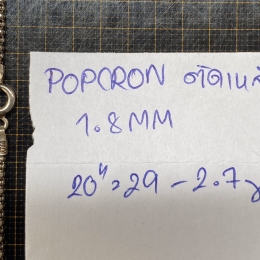 POPCRON ตัดเหลี
1.8MM
20"=29-2.7g